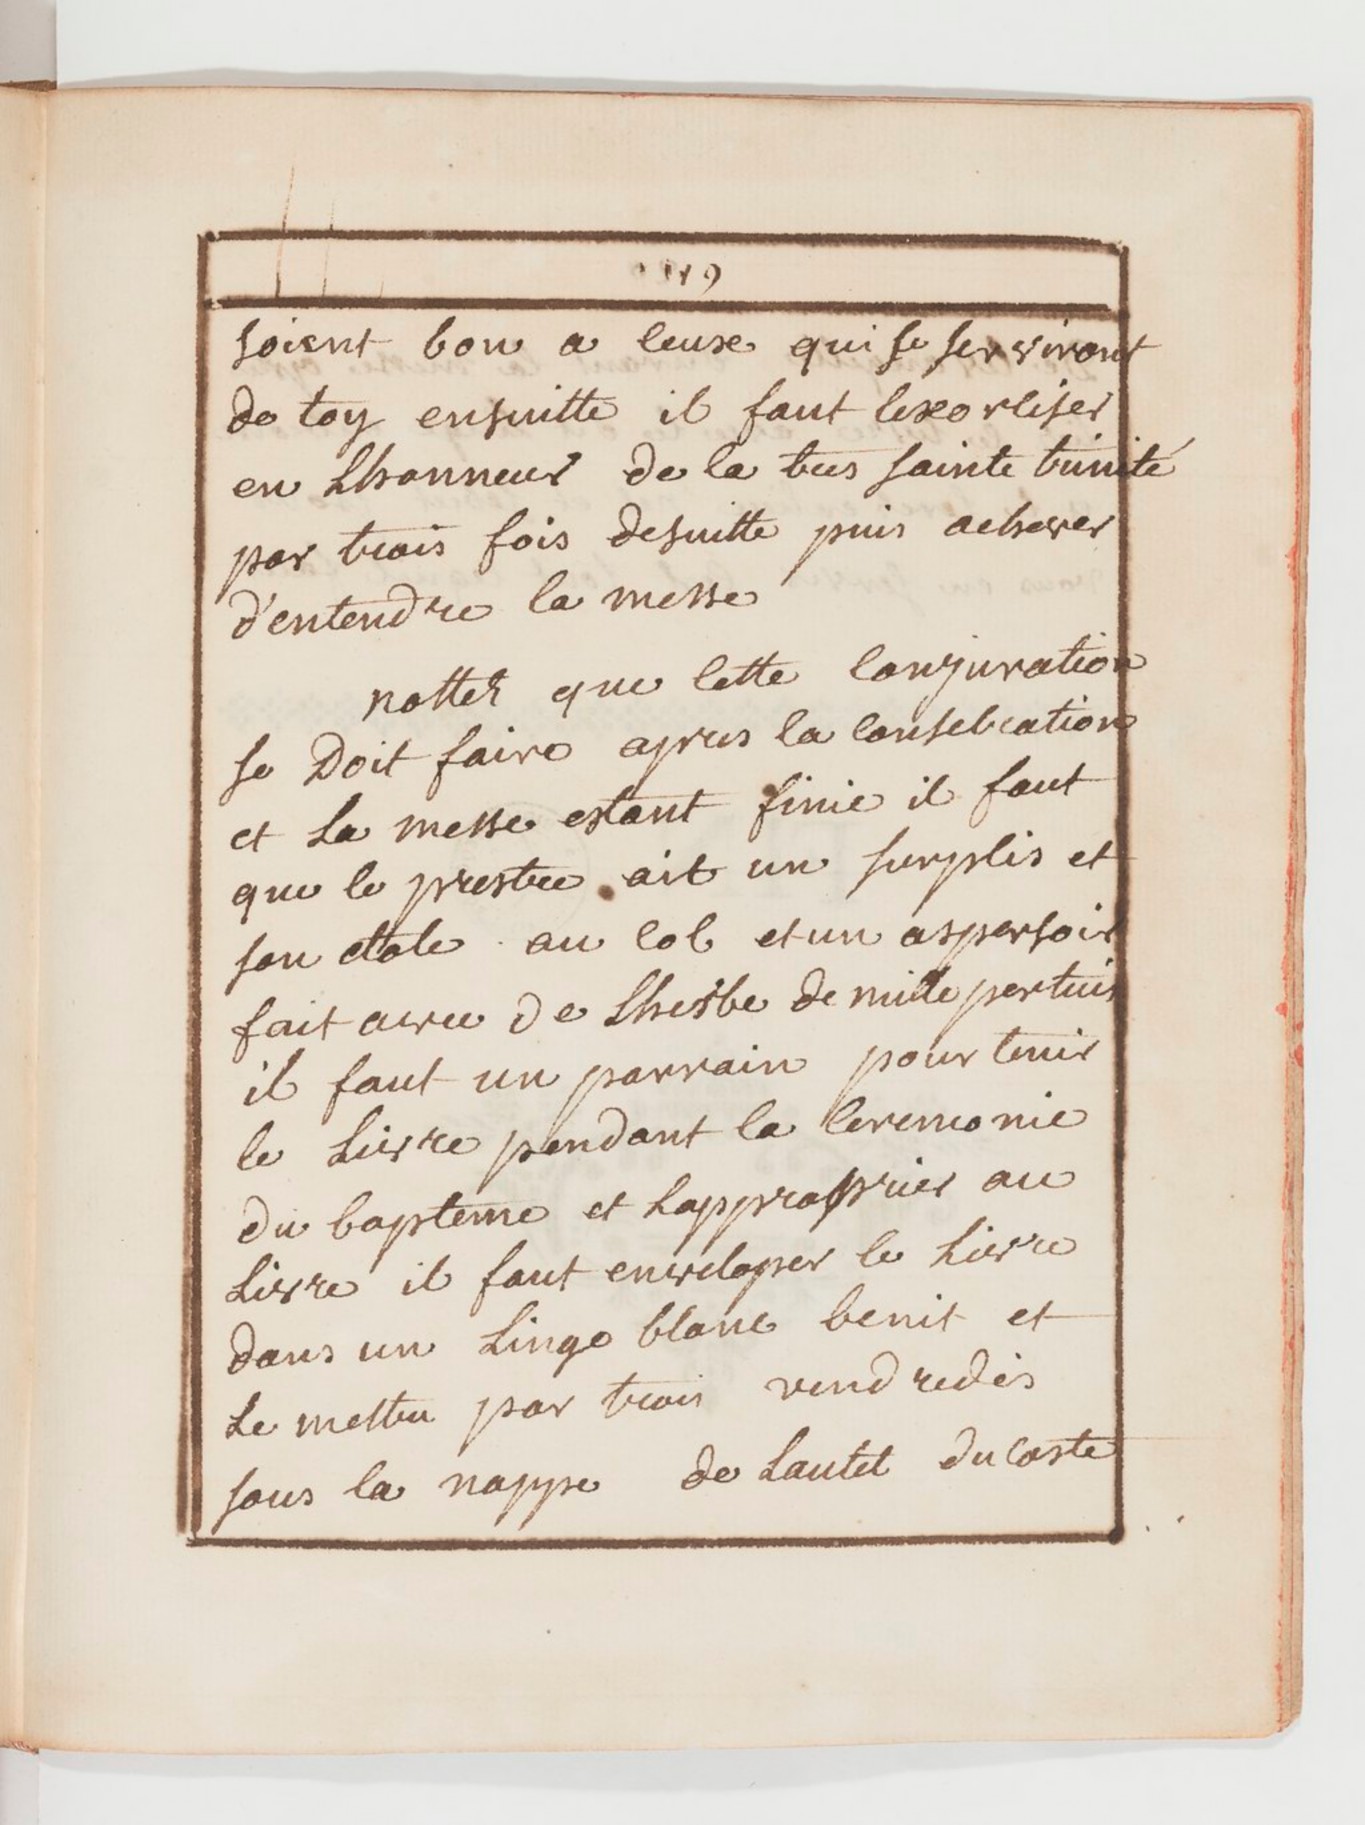 soient bon a ceuxe qui se serviront
de toy ensuitte il faut lexorciser
en Lhonneur de la tres sainte trinité
par trois fois desuitte puis achever
d'entendre la messe
nottez que cette conjuration
se Doit faire apres la consecration
et La messe estant finie il faut
que le prestre ait un surplis et
son etole au col et un aspersoir
fait avec de Lherbe de mille pertuis
il faut un parrain pour tenir
le Livre pendant la ceremonie
du bapteme et Lapproprier au
Livre il faut enveloper le Livre
dans un Linge blanc benit et
Le mettre par trois vendredis
sous la nappe de Lautel du coste